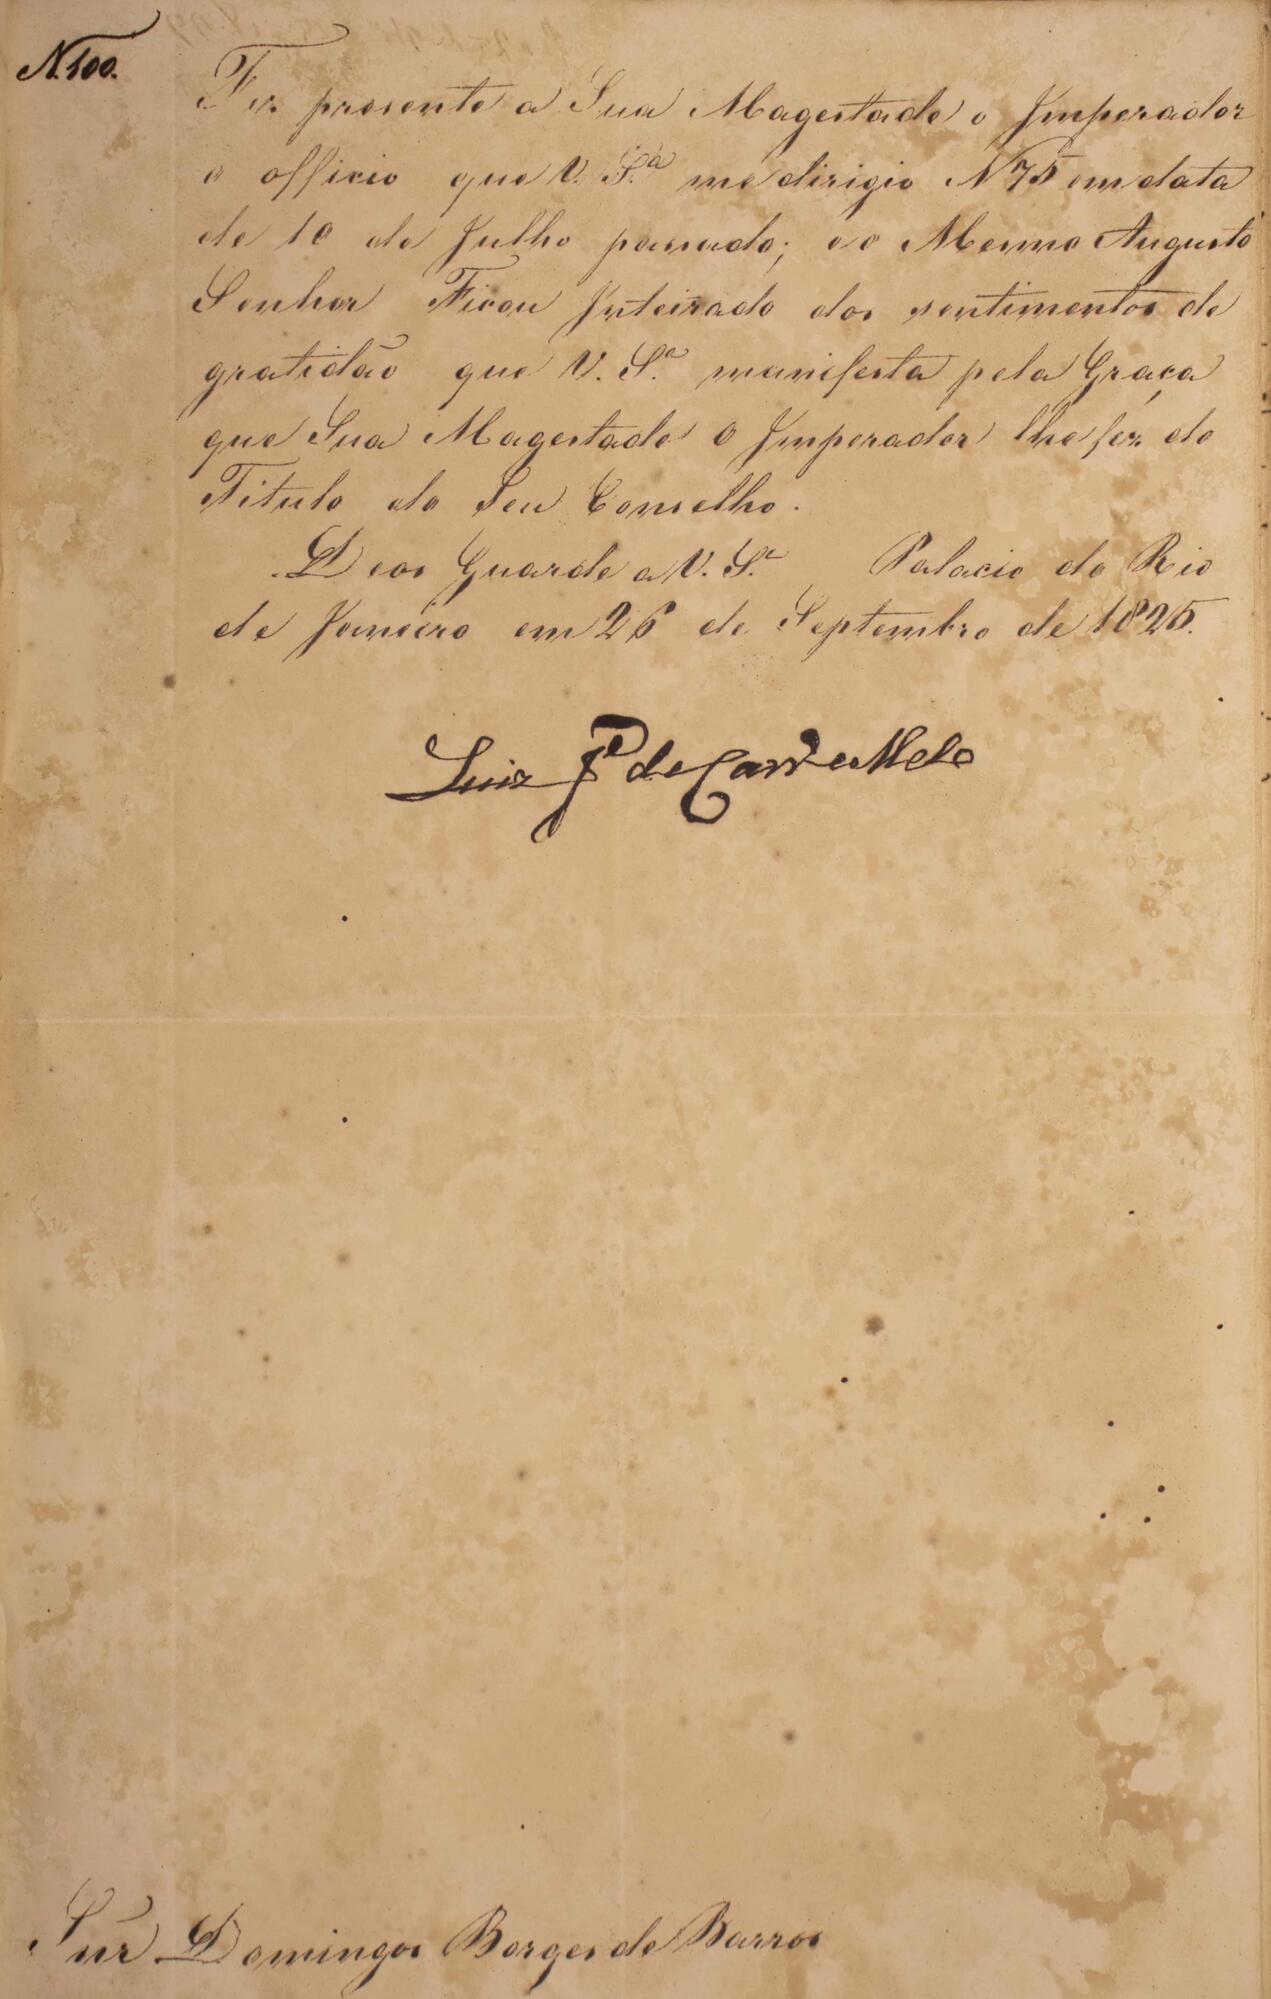 N. 100.
Fiz presente a Sua Magestade o Imperador
o officio que V. S.ª me dirigio N 75 em data
de 10 de Julho passado; e o Mesmo Augusto
Senhor Ficou Inteirado dos sentimentos de
gratidão que V. S.ª manifesta pela Graça
que Sua Magestade o Imperador lhe fez do
Titulo do Seu Conselho.
Deos Guarde a V. S.ª Palacio do Rio
de Janeiro em 26 de Septembro de 1825.
Luiz Jé de Carvº e Mello
Snr Domingos Borges de Barros